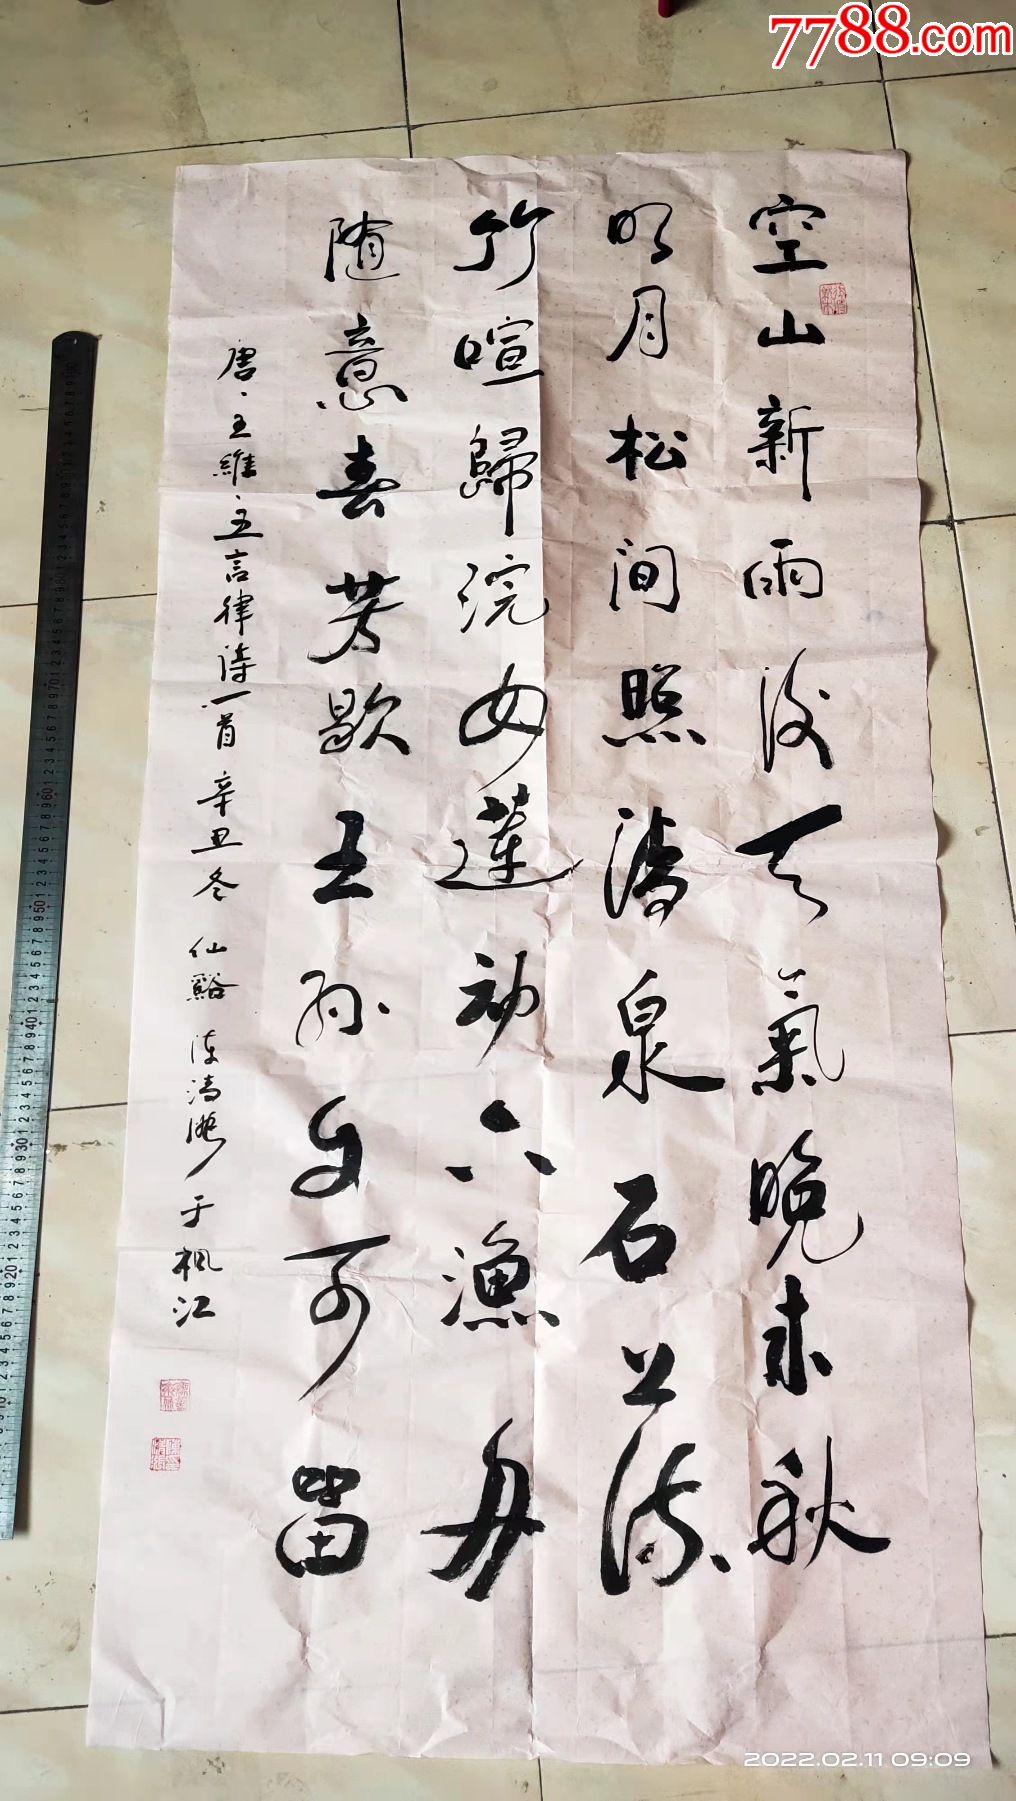 7788.com
空山新雨後天氣晚来秋
明月松间照清泉石上流
竹喧歸浣女蓮动下漁舟
随意春芳歇王孙自可留
唐·王維·五言律诗一首 辛丑冬 仙谿 陈清 于枫江
2022.02.11 09:09